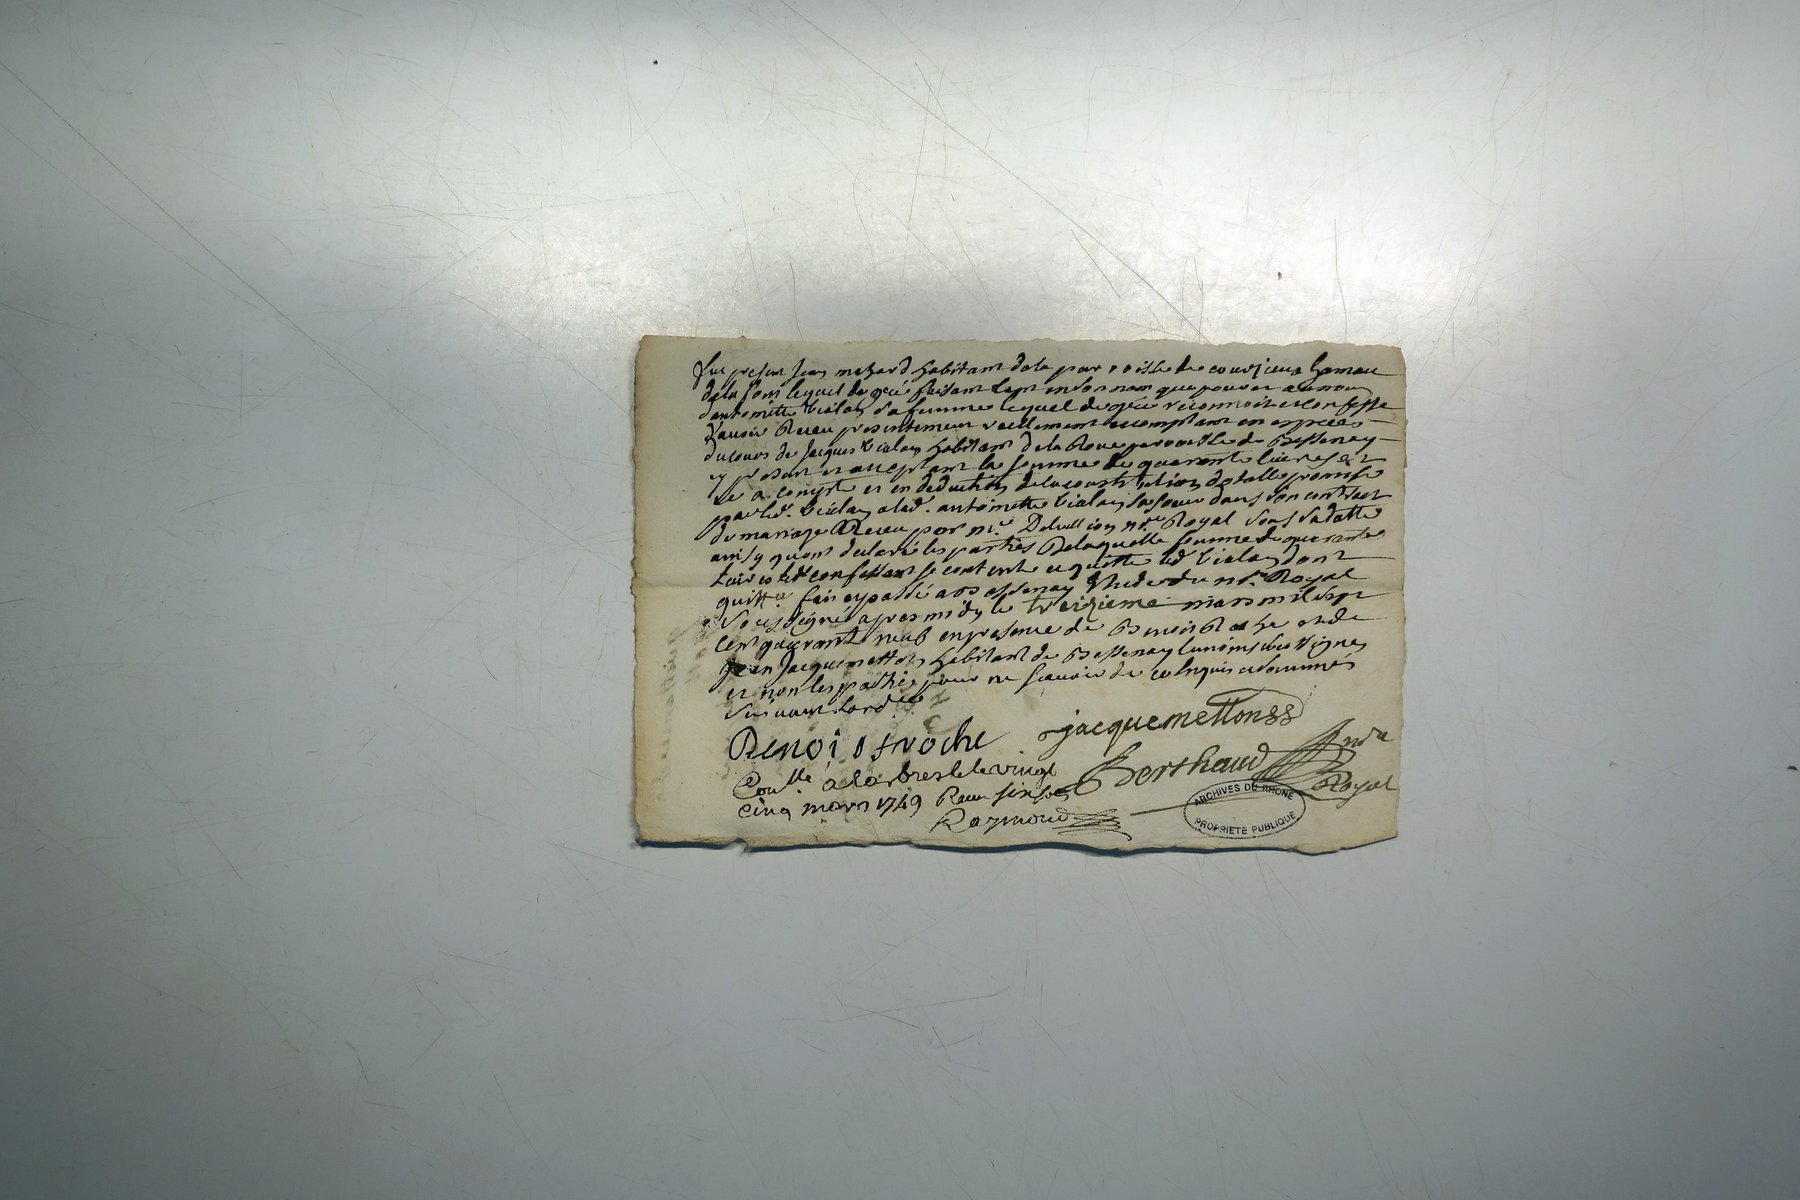 fut present Jean mazard habitant de la parroisse de courzieux hameau
de la font lequel de gré faisant tant en son nom que pour et au nom
dantoinette Vialay sa femme lequel de gré reconnoit et confesse
d'avoir Receu presentement reellement et comptant en especes
du cours de Jacques Vialay habitant de la Roue parroisse de Bessenay
y present et acceptant la somme de quarante livres et
ce a compte et en deduction de la constitution dotalle promise
par led. Vialay a lad. antoinette Vialay sa soeur dans son contract
de mariage Receu par me. Royal sous sa datte
ainsy quont declaré les parties De laquelle somme de quarante
livres led confessant se contente et quitte led Vialay dont
quitte. fait et passé a Bessenay Etude du nre. Royal
soussigné apres midy le treizieme mars mil sept
cent quarante neuf en presence de Benoit Roche et de
Jean Jacquemetton habitant de Bessenay temoins signes
et non les parties pour ne scavoir de ce enquis et sommés
suivant lord.ce
Benoi s froche jacquemettonss
Berthaud nre Royal
Conlle. à larbresle le vingt
cinq mars 1749 Receu six sols
Raymond
ARCHIVES DU RHONE
PROPRIETE PUBLIQUE